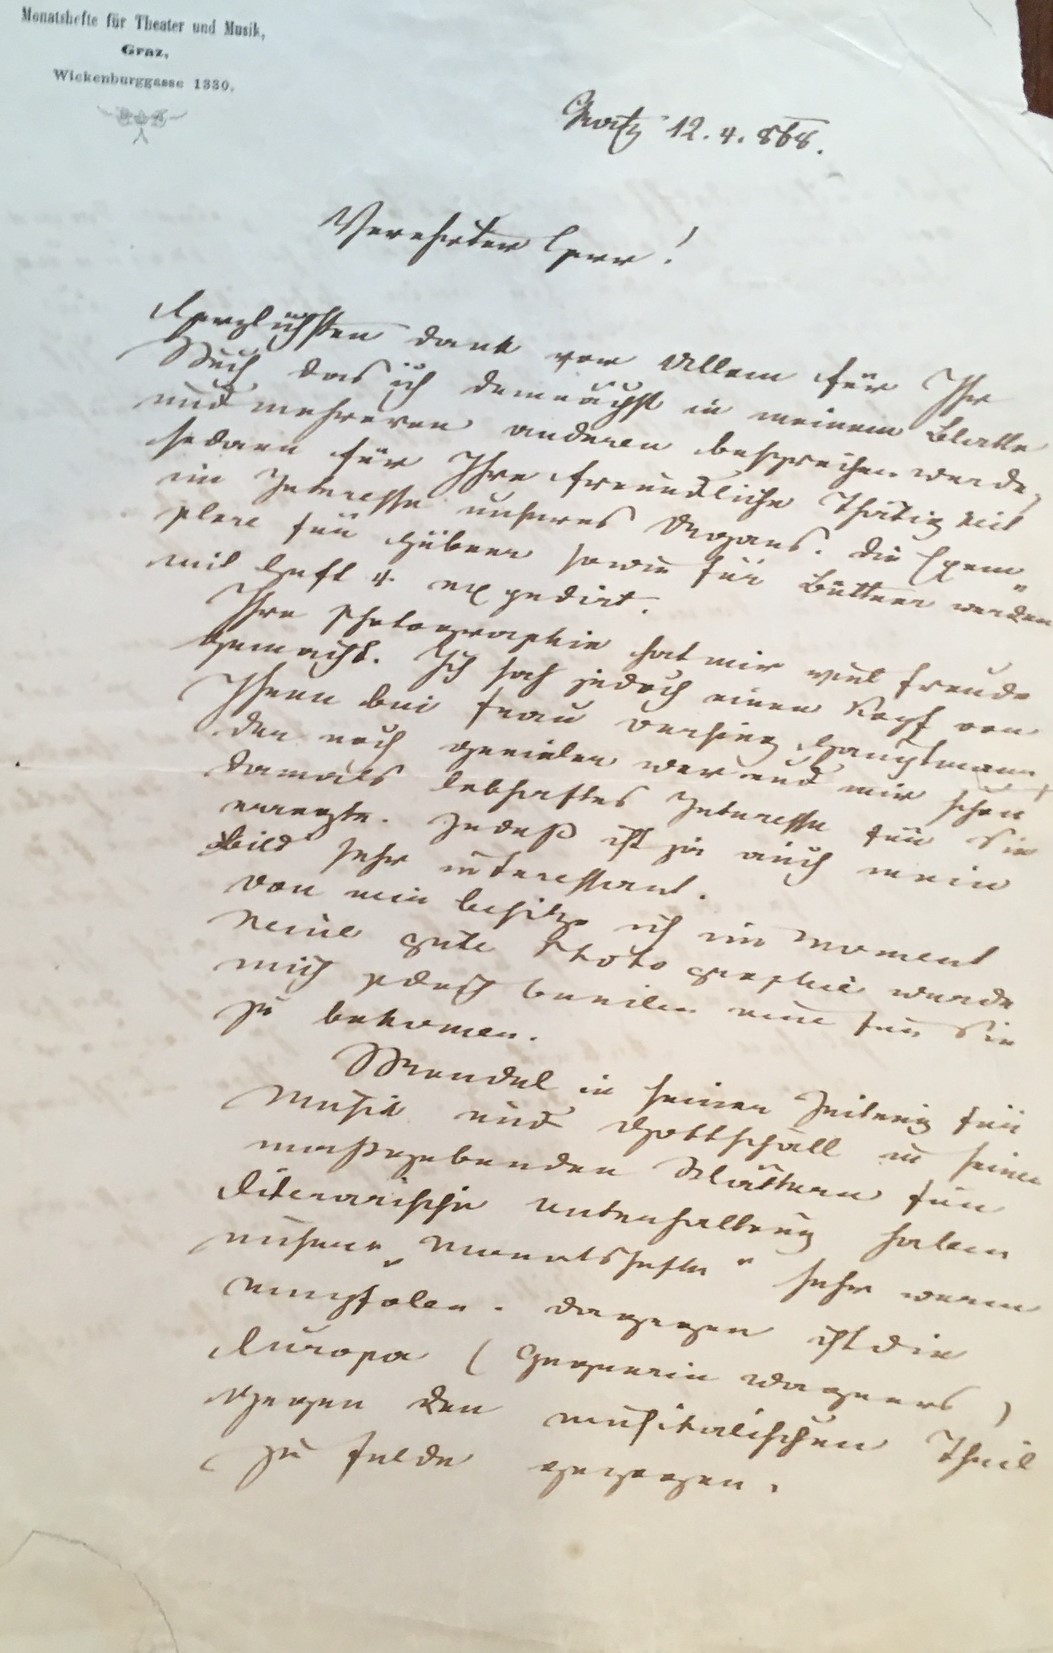 Monatshefte für Theater und Musik,
Graz,
Wickenburggasse 1330.
Gratz 12.4.868.
Verehrter Herr!
Herzlichsten Dank vor Allem für Ihr
Buch das ich demnächst in meinem Blatte
und mehreren anderen besprechen werde,
sodann für Ihre freundliche Thätigkeit
im Interesse unseres Organs. Die Exem-
plare für Hübner sowie für Büttner werden
mit Heft 4. expedirt.
Ihre Photographie hat mir viel Freude
gemacht. Ich sah jedoch einen Kopf von
Ihnen bei Frau Versing Hauptmann,
der noch genialer war und mir schon
damals lebhaftes Interesse für Sie
erregte. Indeß ist ja auch mein
Bild sehr interessant.
Von mir besitze ich im Moment
keine gute Photographie werde
mich jedoch beeilen eine für Sie
zu bekomen.
Mendel in seiner Zeitung für
Musik und Gottschall in seinen
maßgebenden Blättern für
literarische Unterhaltung haben
unsere „Monatshefte“ sehr warm
empfolen. Dagegen ist die
Europa (Gegnerin Wagners)
gegen den musikalischen Theil
zu Felde gezogen.